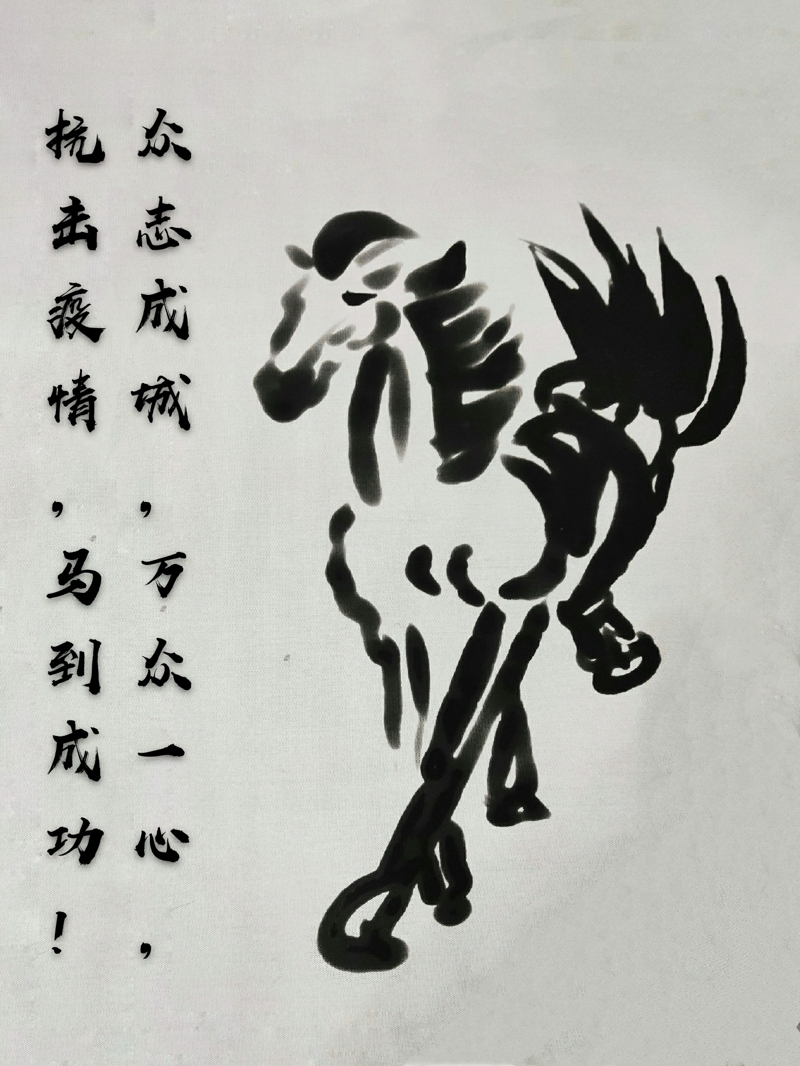 众志成城，万众一心，
抗击疫情，马到成功！